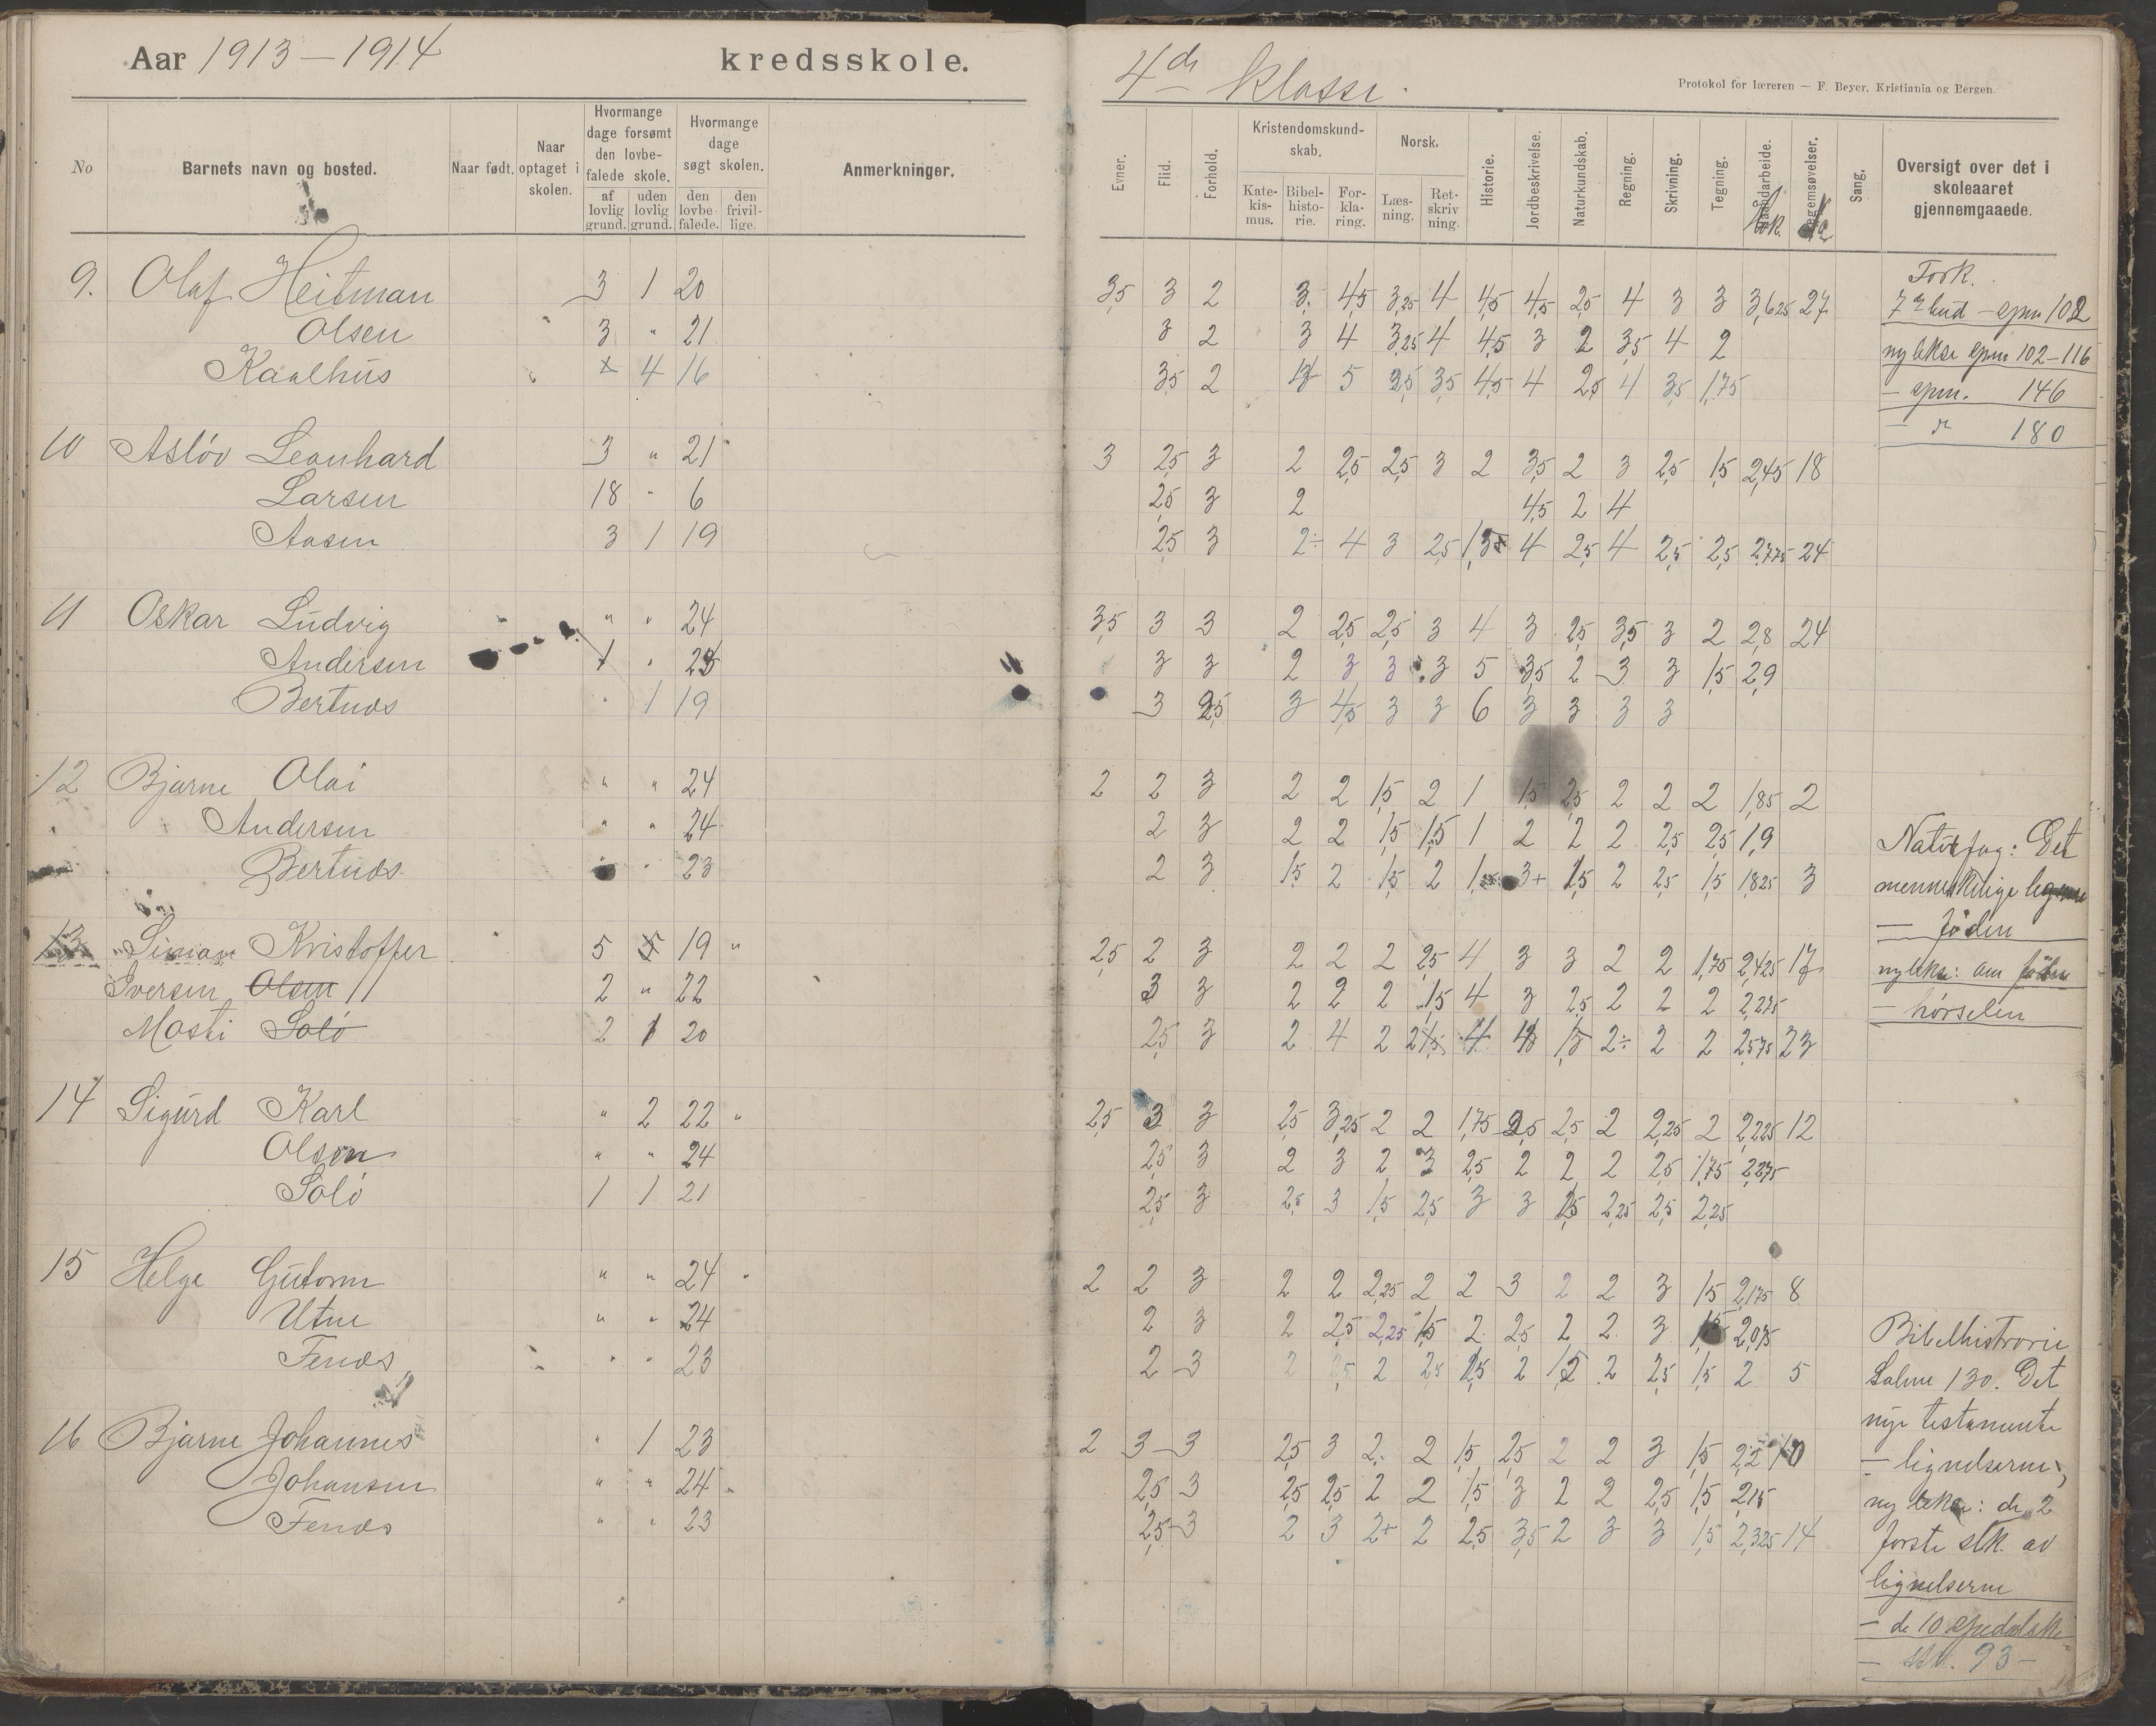 Aar 1913-1914 kredsskole.
No
Barnets navn og bosted.
Naar født.
Naar optaget i skolen.
Hvormange dage forsømt den lovbefalede skole.
af lovlig grund.
uden lovlig grund.
Hvormange dage søgt skolen.
den lovbefalede.
den frivillige.
Anmerkninger.
9. Olaf Heitman 3 1 20
Olsen 3 " 21
Kaalhus 4 16
10 Asløv Leonhard 3 " 21
Larsen 18 " 6
Aasen 3 1 19
11 Oskar Ludvig " " 24
Andersen 1 "
Bertnes " 1 19
12 Bjarne Olai " " 24
Andersen " " 24
Bertnes " 23
13 Simon Kristoffer 5 19 "
Iversen Olsen 2 " 22
Mosti Solö 2 1 20
14 Sigurd Karl " 2 22 "
Olsen " " 24
Solö 1 1 21
15 Helge Gutorm " " 24
Utne " " 24
Fenes " " 23
16 Bjarne Johannes " 1 23
Johansen " " 24
Fenes " " 23
4de Klasse.
Protokol for læreren — F. Beyer, Kristiania og Bergen.
Evner.
Flid.
Forhold.
Kristendomskundskab.
Katekismus.
Bibelhistorie.
Forklaring.
Norsk.
Læsning.
Retskrivning.
Historie.
Jordbeskrivelse.
Naturkundskab.
Regning.
Skrivning.
Tegning.
Haandarbeide.
Legemsøvelser.
Sang.
Oversigt over det i skoleaaret gjennemgaaede.
3,5 3 2 3 4,5 3,25 4 4,5 4,5 2,5 4 3 3 3,625 27
3 2 3 4 3,25 4 4,5 3 2 3,5 4 2
3,5 2 5 3,5 4,5 4 2,5 4 3,5 1,75
3 2,5 3 2 2,5 2,5 3 2 3,5 2 3 2,5 1,5 2,45 18
2,5 3 2 4,5 2 4
2,5 3 2÷ 4 3 2,5 4 2,5 4 2,5 2,5 2,775 24
3,5 3 3 2 2,5 2,5 3 4 3 2,5 3,5 3 2 2,8 24
3 3 2 3 3 3 5 3,5 2 3 3 1,5 2,9
3 2,5 3 4,5 3 3 6 3 3 3 3
2 2 3 2 2 1,5 2 1 1,5 2,5 2 2 2 1,85 2
2 3 2 2 1,5 1,5 1 2 2 2 2,5 2,5 1,9
2 3 1,5 2 1,5 2 3+ 1,5 2 2,5 1,5 1,825 3
2,5 2 3 2 2 2 2,5 4 3 3 2 2 1,75 2,425 17
3 3 2 2 2 1,5 4 3 2,5 2 2 2 2,275
2,5 3 2 4 2 4 2÷ 2 2 2,575 23
2,5 3 3 2,5 3,25 2 2 1,75 2,5 2,5 2 2,25 2 2,225 12
2,5 3 2 3 2 3 2,5 2 2 2 2,5 1,75 2,275
2,5 3 2,5 3 1,5 2,5 3 3 1,5 2,25 2,5 2,25
2 2 3 2 2 2,25 2 2 3 2 2 3 1,5 2,175 8
2 3 2 2,5 2,25 1,5 2 2,5 2 2 3 1,5 2,075
2 3 2 2,5 2 2,5 1,5 2 2 2,5 1,5 2 5
2 3 3 2,5 3 2 2 1,5 2,5 2 2 3 1,5 2,25 10
2,5 3 2,5 2,5 2 2 1,5 3 2 2 2,5 1,5 2,15
2,5 3 2 3 2+ 2 2,5 3,5 2 3 3 1,5 2,325 14
Fork.
7de bud - spm 102
ny lekse spm 102-116
- spm. 146
- " 180
Naturfag: Det
menneskelige legeme
— föden
ny lekse: om föden
— hørselen
Bibelhistrorie
Salme 130. Det
nye testamente
— lignelserne;
ny lekse: de 2
første stk. av
lignelserne
— de 10 spedalske
— stk. 93 —